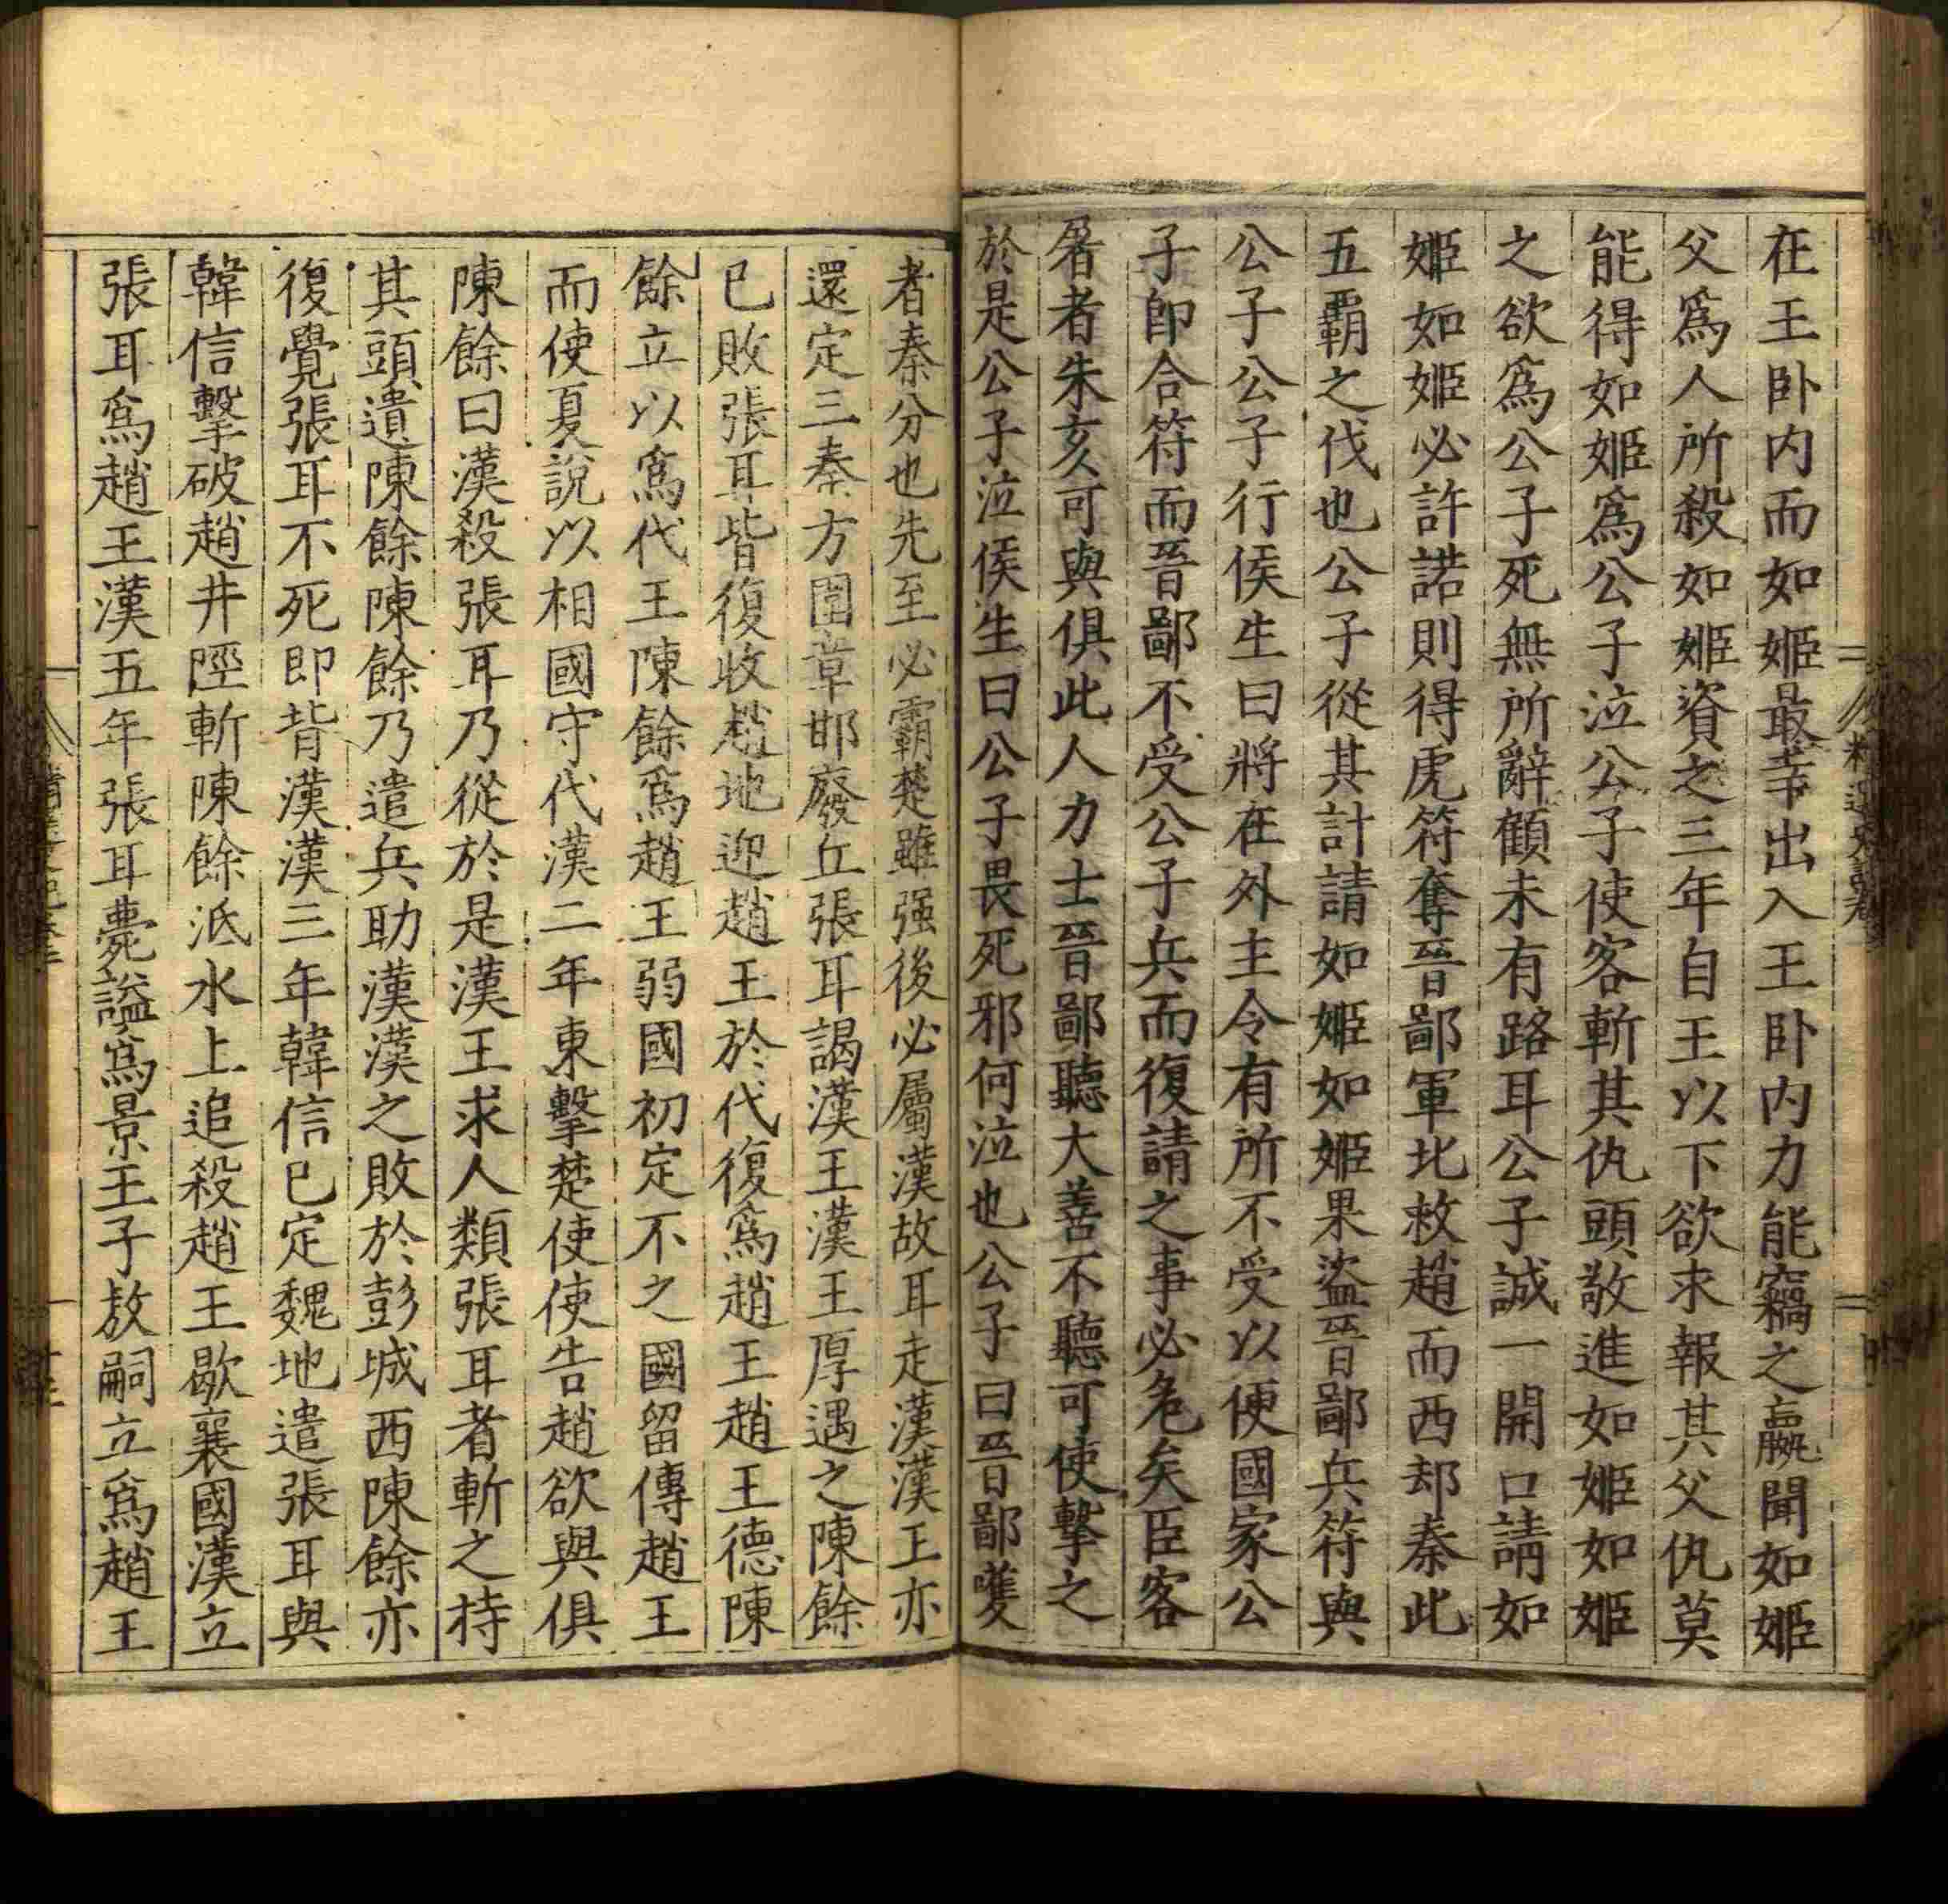 在王卧内而如姬最幸出入王卧内力能竊之嬴聞如姬
父爲人所殺如姬資之三年自王以下欲求報其父仇莫
能得如姬爲公子泣公子使客斬其仇頭敬進如姬如姬
之欲爲公子死無所辭顧未有路耳公子誠一開口請如
姬如姬必許諾則得虎符奪晉鄙軍北救趙而西却秦此
五霸之伐也公子從其計請如姬如姬果盜晉鄙兵符與
公子公子行侯生曰將在外主令有所不受以便國家公
子卽合符而晉鄙不受公子兵而復請之事必危矣臣客
屠者朱亥可與俱此人力士晉鄙聽大善不聽可使擊之
於是公子泣侯生曰公子畏死邪何泣也公子曰晉鄙嚄
者秦分也先至必霸楚雖强後必屬漢故耳走漢漢王亦
還定三秦方圍章邯廢丘張耳謁漢王漢王厚遇之陳餘
已敗張耳皆復收趙地迎趙王於代復爲趙王趙王德陳
餘立以爲代王陳餘爲趙王弱國初定不之國留傅趙王
而使夏說以相國守代漢二年東擊楚使使告趙欲與俱
陳餘曰漢殺張耳乃從於是漢王求人類張耳者斬之持
其頭遺陳餘陳餘乃遣兵助漢漢之敗於彭城西陳餘亦
復覺張耳不死卽背漢漢三年韓信已定魏地遣張耳與
韓信擊破趙井陘斬陳餘泜水上追殺趙王歇襄國漢立
張耳爲趙王漢五年張耳薨謚爲景王子敖嗣立爲趙王